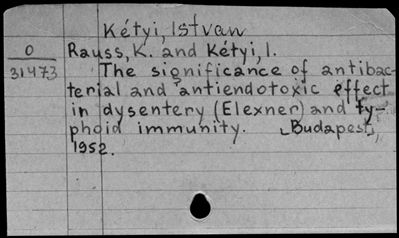 Kétyi, Istvan
O
31473
Rauss, K. and Kétyi, I.
The significance of antibac-
terial and antiendotoxic effect
in dysentery (Elexner) and ty-
phoid immunity. Budapest,
1952.